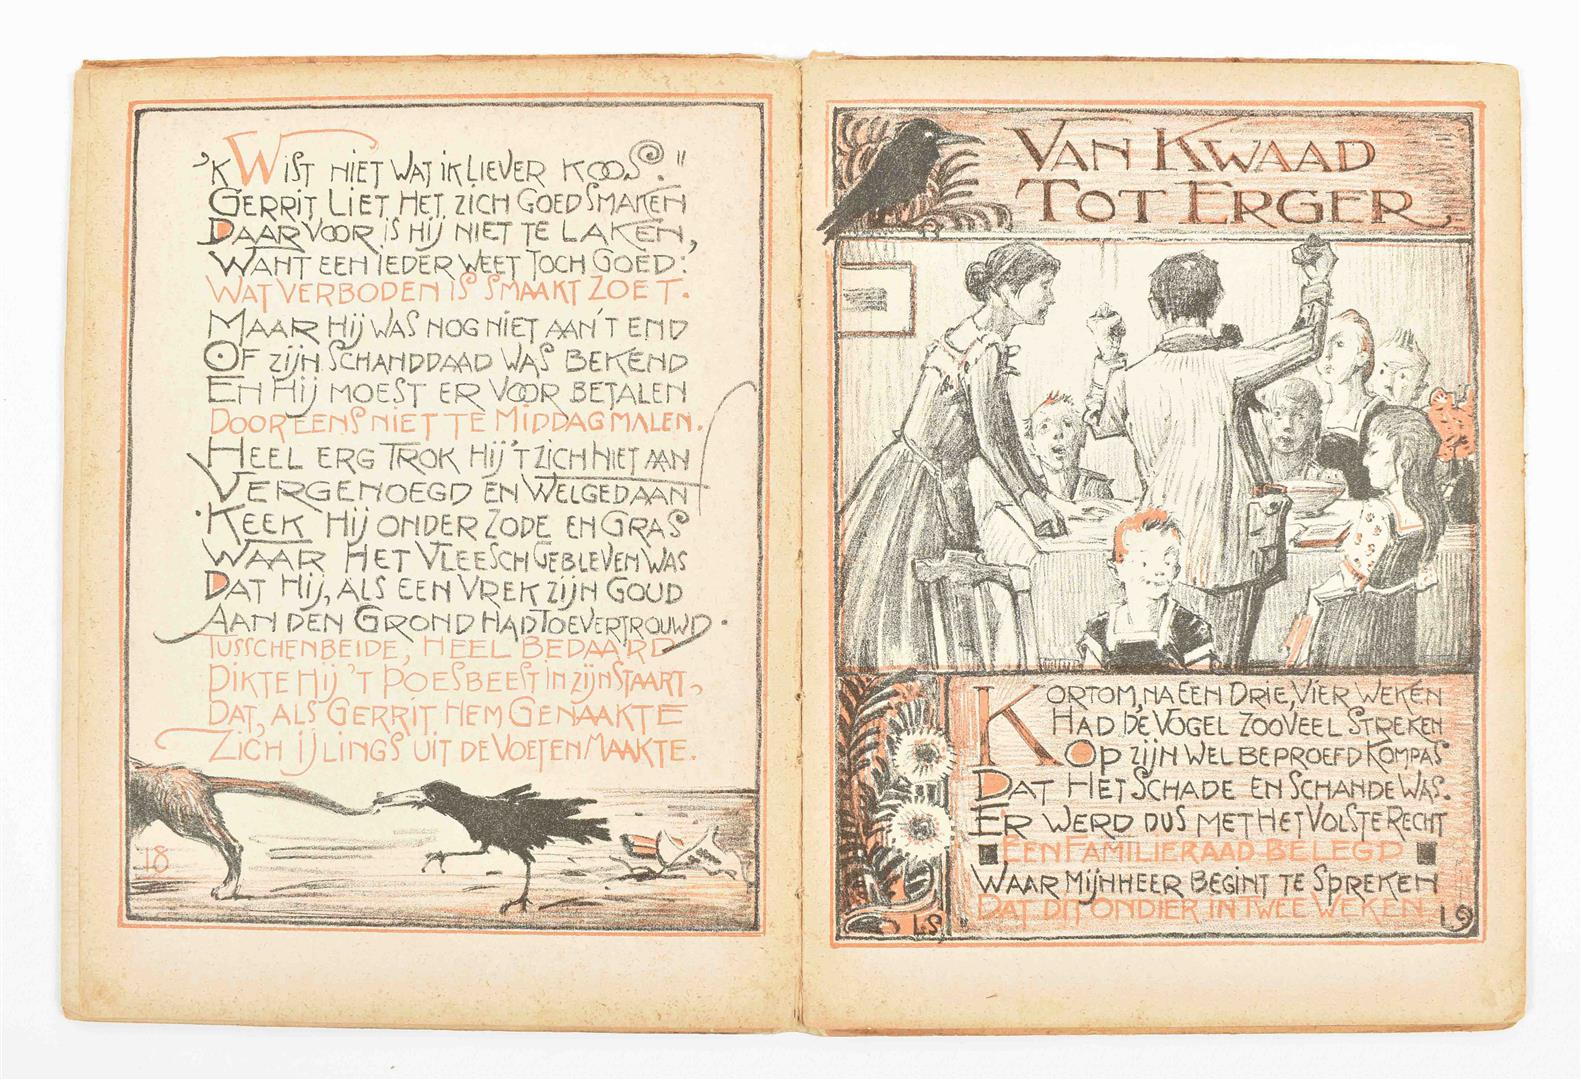 'K WIST NIET WAT IK LIEVER KOOS."
GERRIT LIET HET ZICH GOED SMAKEN
DAARVOOR IS HIJ NIET TE LAKEN,
WANT EEN IEDER WEET TOCH GOED:
WAT VERBODEN IS SMAAKT ZOET.
MAAR HIJ WAS NOG NIET AAN 'T END
OF ZIJN SCHANDDAAD WAS BEKEND
EN HIJ MOEST ER VOOR BETALEN
DOOR EENS NIET TE MIDDAGMALEN.
HEEL ERG TROK HIJ 'T ZICH NIET AAN
VERGENOEGD EN WELGEDAAN
KEEK HIJ ONDER ZODE EN GRAS
WAAR HET VLEESCH GEBLEVEN WAS
DAT HIJ, ALS EEN VREK ZIJN GOUD
AAN DEN GROND HAD TOEVERTROUWD.
TUSSCHENBEIDE, HEEL BEDAARD
PIKTE HIJ 'T POESBEEST IN ZIJN STAART,
DAT, ALS GERRIT HEM GENAAKTE
ZICH IJLINGS UIT DE VOETEN MAAKTE.
18
VAN KWAAD
TOT ERGER
KORTOM, NA EEN DRIE, VIER WEKEN
HAD DE VOGEL ZOOVEEL STREKEN
OP ZIJN WELBEPROEFD KOMPAS
DAT HET SCHADE EN SCHANDE WAS.
ER WERD DUS MET HET VOLSTE RECHT
EEN FAMILIERAAD BELEGD
WAAR MIJNHEER BEGINT TE SPREKEN
"DAT DIT ONDIER IN TWEE WEKEN
L.S.
19